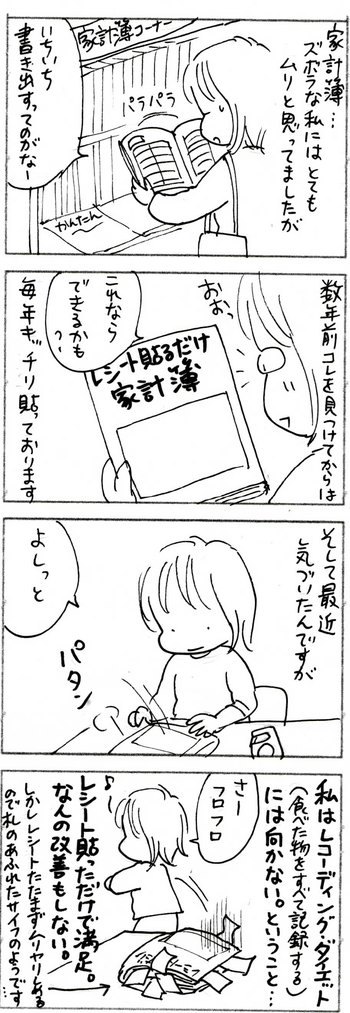 家計簿…
ズボラな私にはとても
ムリと思ってましたが
家計簿コーナー
パラパラ
いちいち
書き出すってのがなー
かんたん
数年前コレを見つけてからは
おおっ
これなら
できるかも
レシート貼るだけ
家計簿
毎年キッチリ貼っております
そして最近
気づいたんですが
よしっと
パタン
私はレコーディングダイエット
(食べた物をすべて記録する)
には向かない。ということ…
さー
フロフロ
レシート貼っただけで満足。
なんの改善もしない。
しかしレシートたたまずムリヤリとめる
ので札のあふれたサイフのようです…